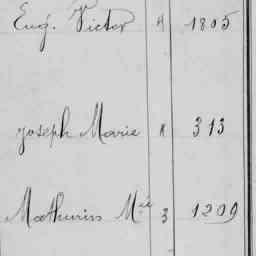 Eug. Victor 4 1805
Joseph Marie 313
Mathurin Mie 3 1209